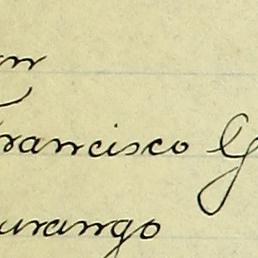 Francisco G
urango